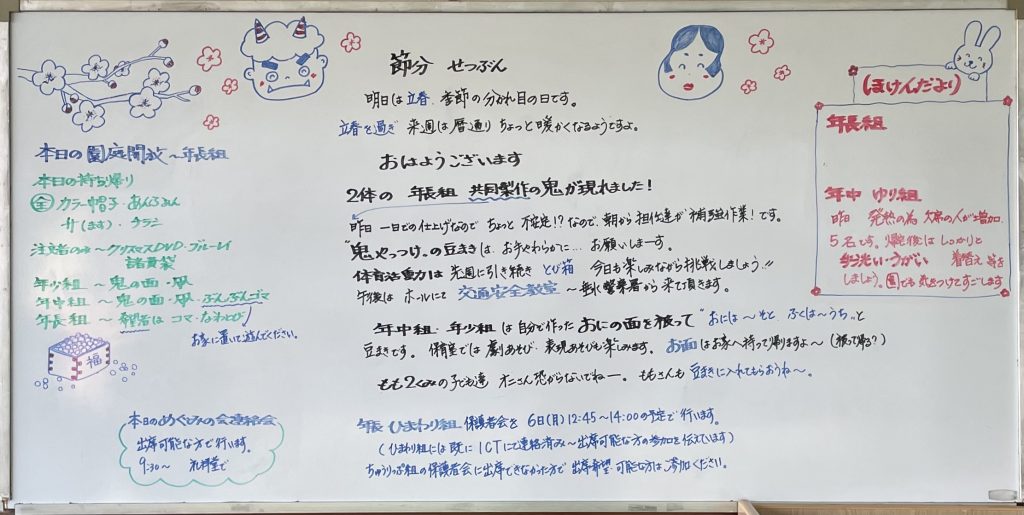 節分 せつぶん
明日は立春、季節の分かれ目の日です。
立春を過ぎ 来週は暦通り ちょっと暖かくなるようですよ。
おはようございます
2体の 年長組 共同製作の鬼が現れました!
昨日 一日での仕上げなので ちょっと 不安定!?なので、朝から担任達が補強作業!です。
"鬼やっつけ"の豆まきは、お手やわらかに… お願いしまーす。
体育活動は先週に引き続き とび箱 今日も楽しみながら挑戦しましょう!!
午後は ホールにて 交通安全教室〜垂水警察署から来て頂きます。
年中組・年少組は自分で作ったおにの面を被って"おには〜そと ふくは〜うち"と
豆まきです。 保育室では 劇あそび・表現あそびも楽しみます。 お面はお家へ持って帰りますよ〜(被って帰る?)
もも2くみの子ども達 オニさん恐がらないでねー。 ももさんも 豆まきに入れてもらおうね〜。
年長 ひまわり組 保護者会を 6日(月)12:45〜14:00の予定で行います。
(ひまわり組には既に ICTにて連絡済み〜出席可能な方の参加を伝えています)
ちゅうりっぷ組の保護者会に出席できなかった方で 出席希望・可能な方は、ご参加ください。
本日の園庭開放〜年長組
本日の持ち帰り
全 カラー帽子・あんふぁん
升(ます)・チラシ
注文者のみ〜クリスマスDVD・ブルーレイ
諸費袋
年少組〜鬼の面・凧
年中組〜鬼の面・凧・ぶんぶんゴマ
年長組〜希望者は コマ・なわとび
お家に置いて遊んでください。
福
本日のめぐみの会連絡会
出席可能な方で行います。
9:30〜 礼拝堂で
ほけんだより
年長組
年中 ゆり組
昨日 発熱の為 欠席の人が増加
5名です。帰宅後は しっかりと
手洗い・うがい 着替え 等を
しましょう。園でも気をつけてすごします